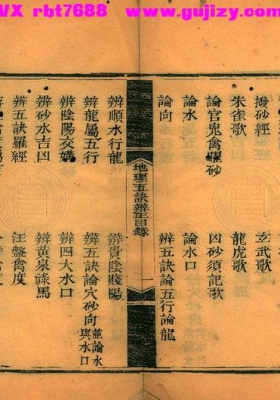 VX rbt7688 www.gujizy.com
撥砂經 玄武歌
朱雀歌 龍虎歌
論官鬼禽曜砂 凶砂須記歌
論水 論水口
論向 辨五訣論五行論龍
地理五訣辨目錄 一
辨順水行龍 辨貴陰賤陽
辨龍屬五行 辨五訣論穴砂向並論水與水口
辨陰陽交媾 辨四大水口
辨砂水吉凶 辨黃泉祿馬
辨五訣羅經 汪盤禽度